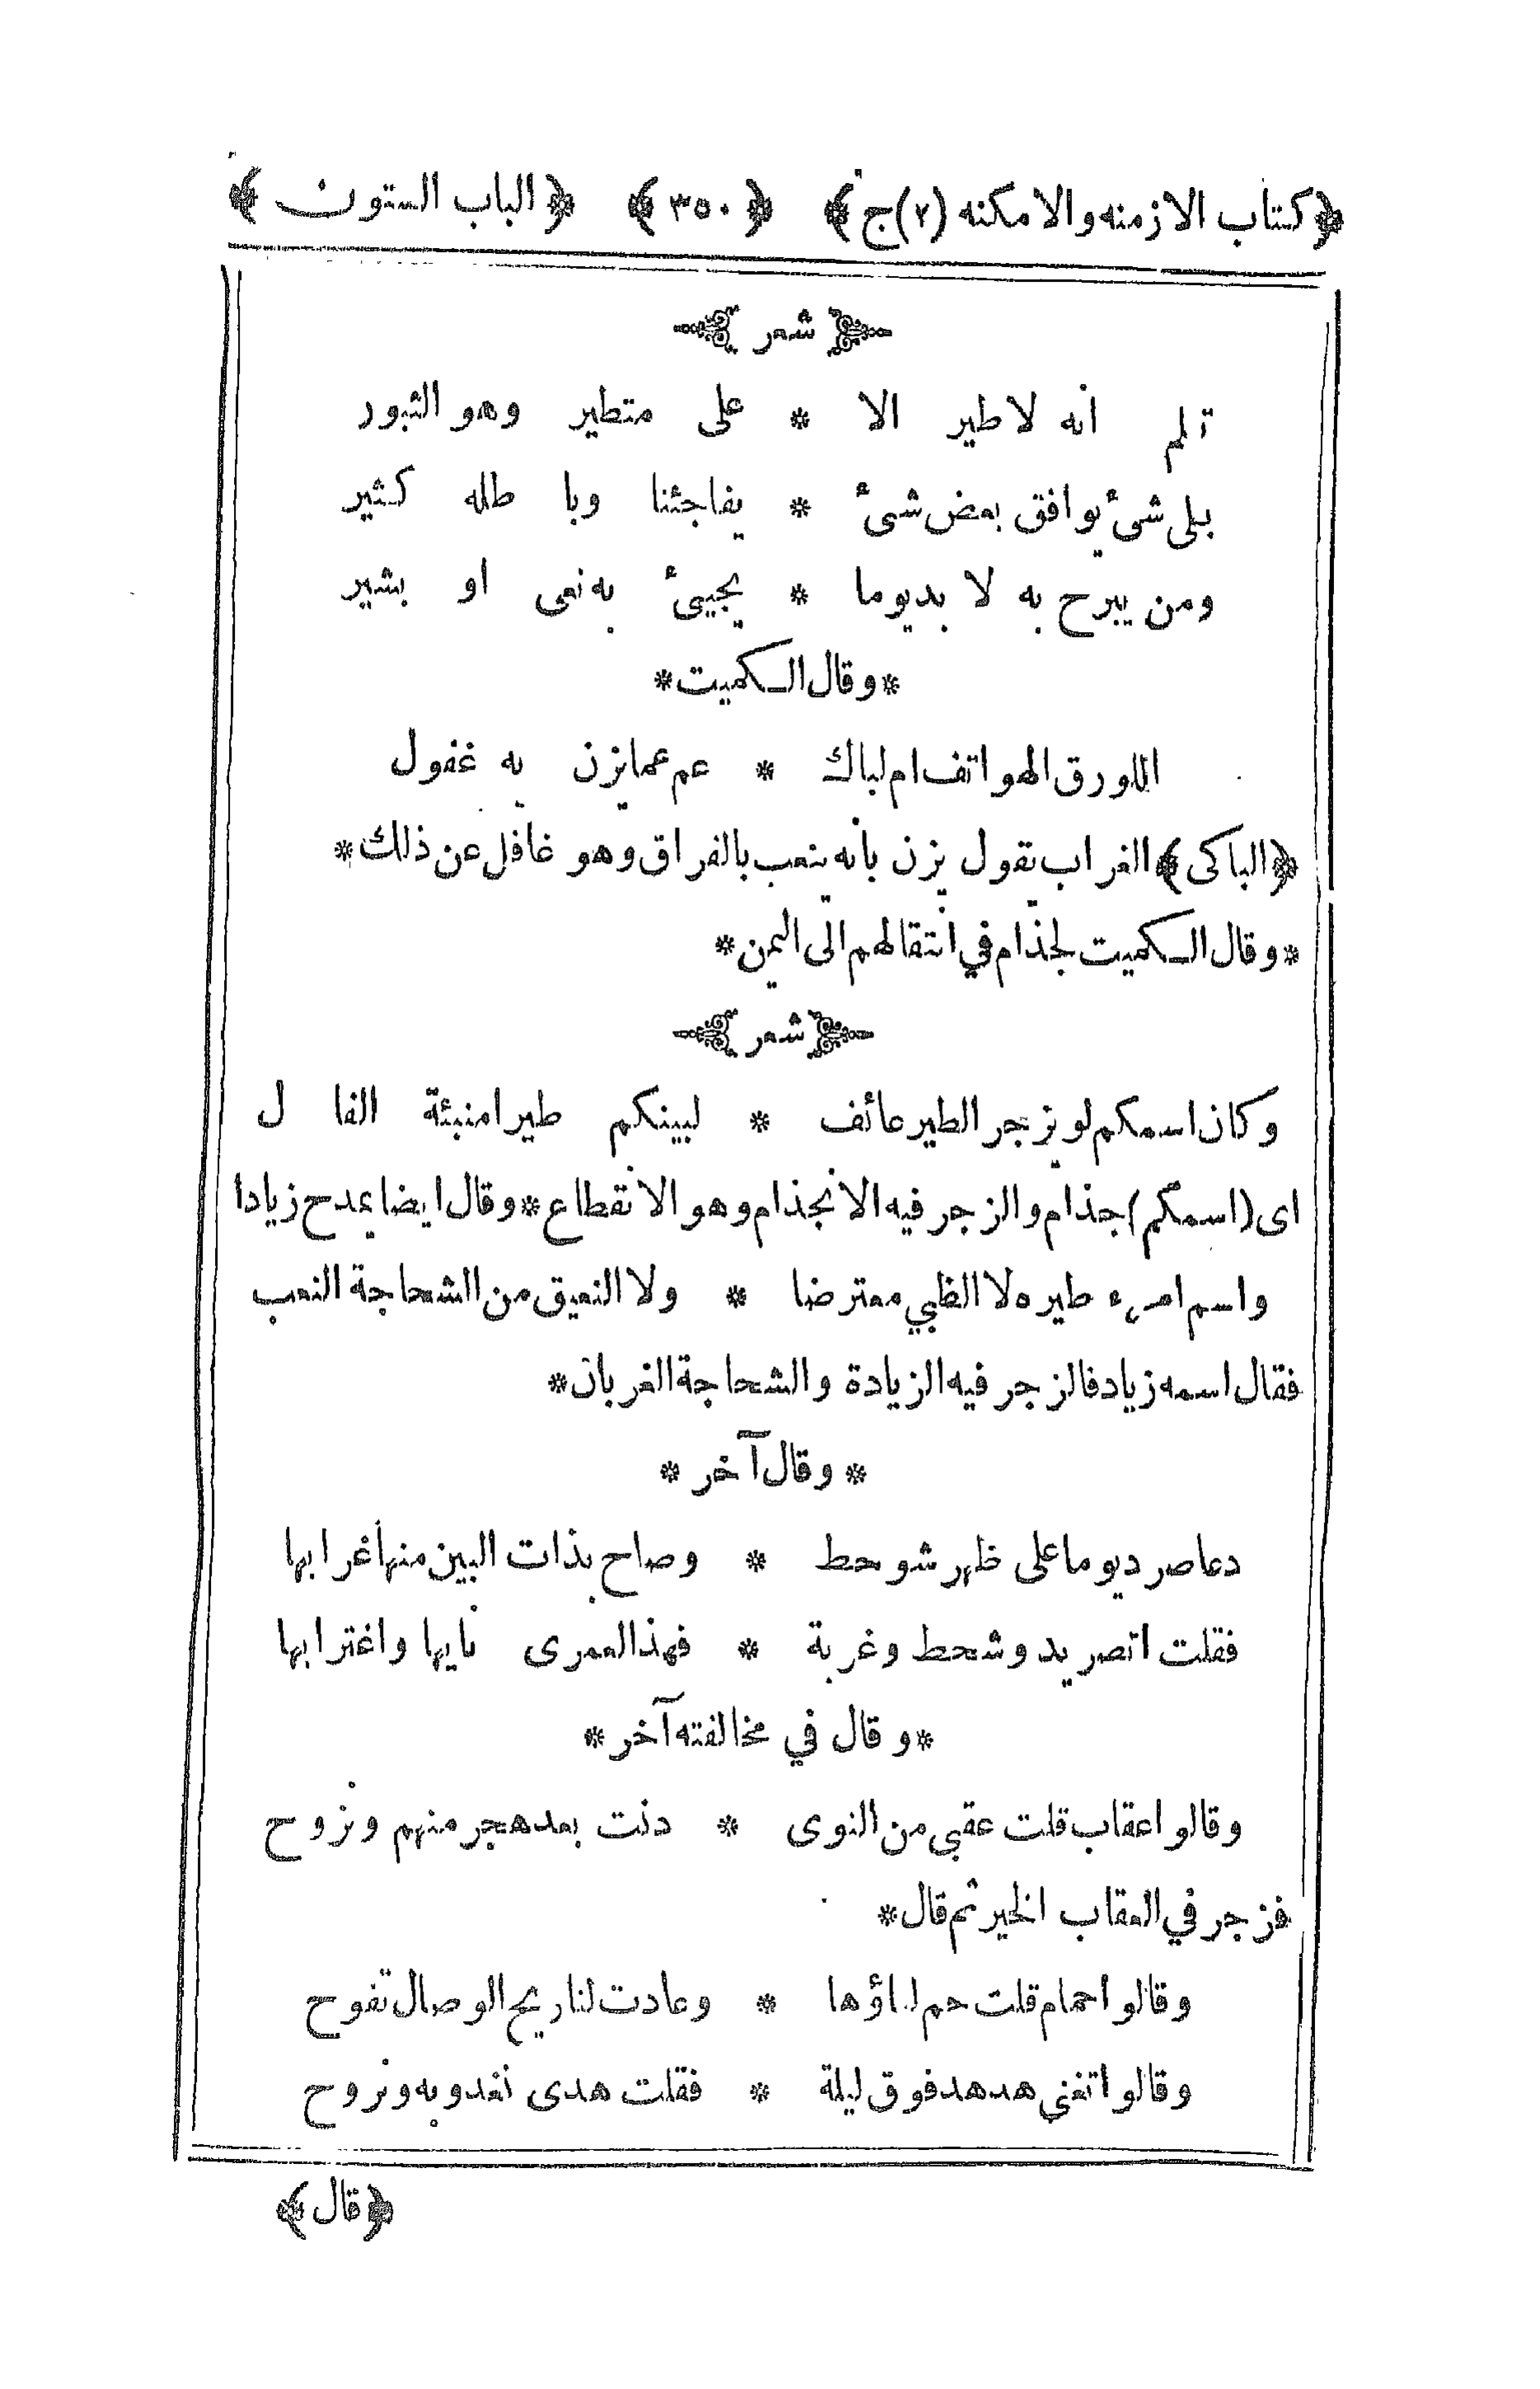 ﴿كتاب الازمنه والامكنه (٢) ج﴾ ﴿٣٥٠﴾ ﴿الباب الستون﴾
﴿شعر﴾
تلم انه لا طير الا * على متطير وهو الثبور
بلى شىٔ يوافق بعض شىٔ * يفاجئنا وبا طله كثير
ومن يبرح به لا بديوما * يجيىٔ به نعى او بشير
*وقال الكميت*
اللورق الهواتف ام لباك * عم عما يزن به غفول
﴿الباكى﴾ الغراب يقول يزن بأنه ينعب بالفراق وهو غافل عن ذلك*
*وقال الكميت لجذام في انتقالهم الى اليمن*
﴿شعر﴾
وكان اسمكم لو يزجر الطير عائف * لبينكم طيرا منبئة الفا ل
اى (اسمكم) جذام والزجر فيه الانجذام وهو الانقطاع * وقال ايضا يمدح زيادا
واسم امرء طيره لا الظبي معترضا * ولا النعيق من الشحاجة النعب
فقال اسمه زياد فالزجر فيه الزيادة والشحاجة الغربان*
* وقال آخر *
دعا صرد يوما على ظهر شوحط * وصاح بذات البين منها غرابها
فقلت اتصريد وشحط وغربة * فهذا لعمرى نايها واغترابها
*وقال في مخالفته آخر*
وقالوا عقاب قلت عقبى من النوى * دنت بعد هجر منهم ونزوح
فزجر في العقاب الخير ثم قال*
وقالوا حمام قلت حم لقاؤها * وعادت لنا ريح الوصال تفوح
وقالوا تغنى هدهد فوق ليلة * فقلت هدى نغدو به ونروح
﴿قال﴾